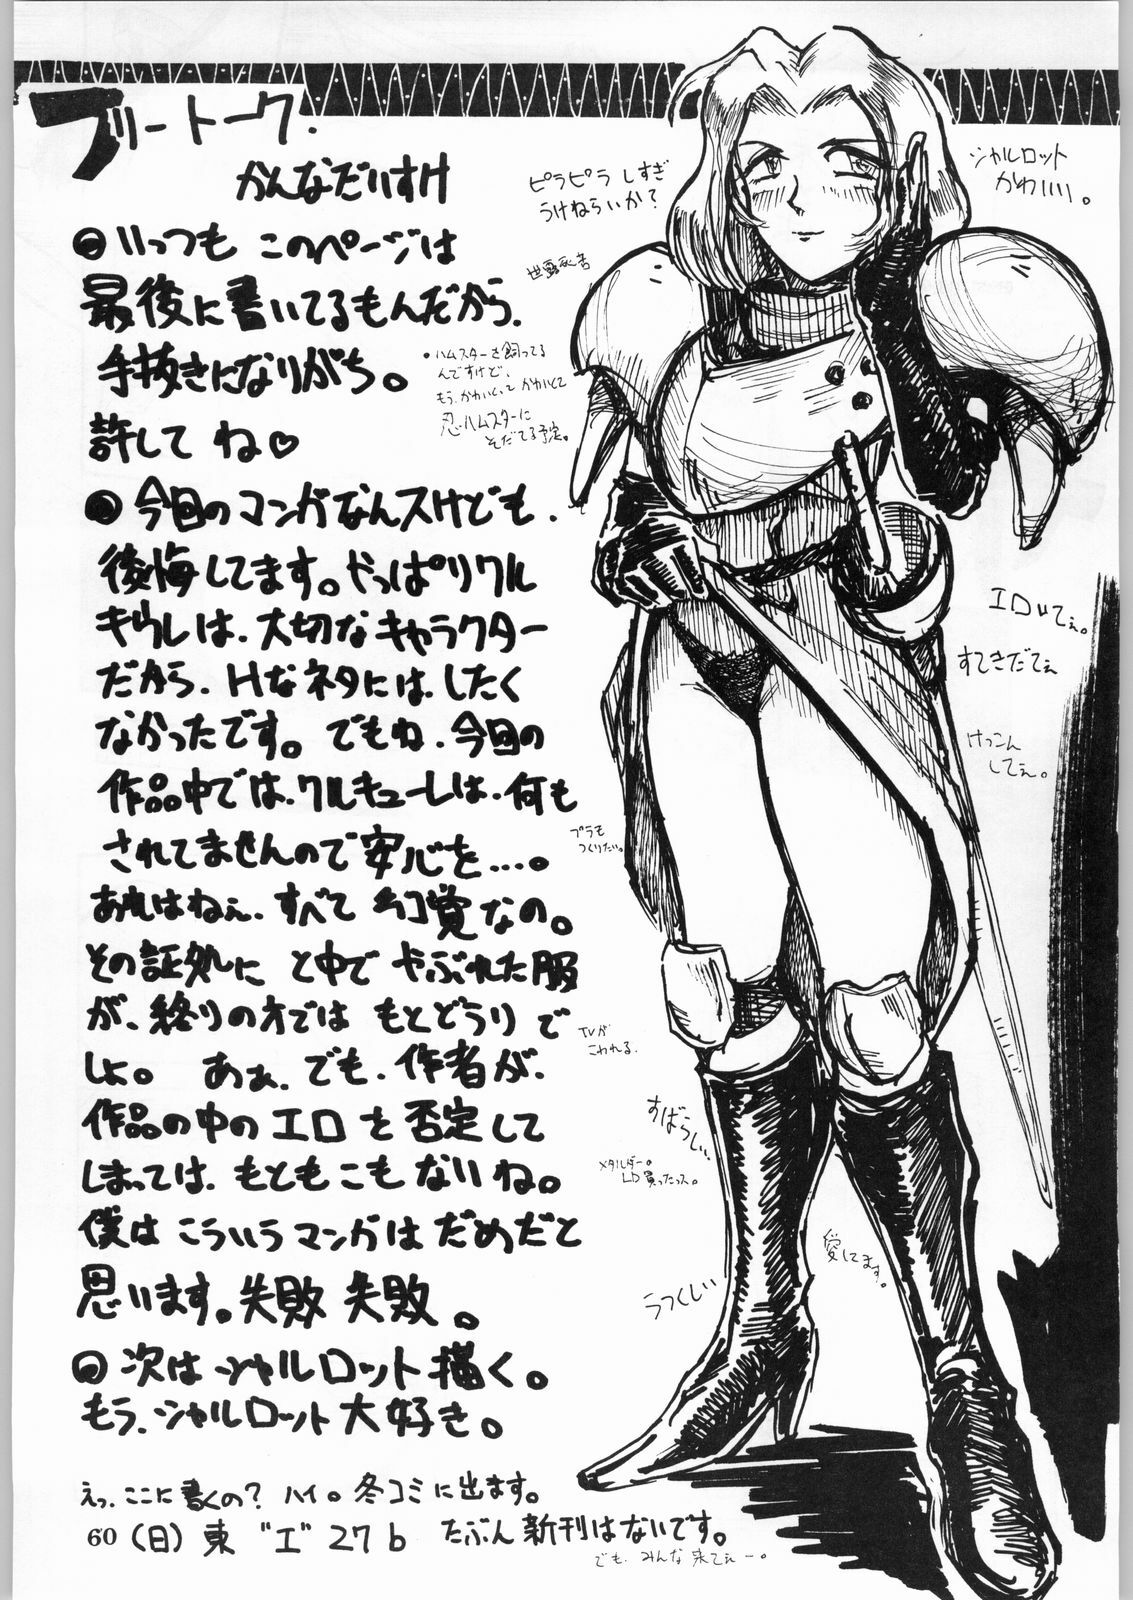 フリートーク.
かんなだいすけ
いっつも このページは
最後に書いてるもんだから.
手抜きになりがち。
許してね♡
今回のマンガなんスけども.
後悔してます。やっぱりクル
キゥレは、大切なキャラクター
だから、Hなネタには、したく
なかったです。でもね、今回の
作品中では、クルキューレは、何も
されてませんので安心を…。
あれはねぇ、すべて 幻覚なの。
その証処に と中で やぶれた服
が、終りの方では もとどうりで
しょ。 あぁ、でも、作者が、
作品の中のエロを否定して
しまっては、もともこもないね。
僕はこういうマンガはだめだと
思います。失敗 失敗。
次はシャルロット描く。
もう、シャルロット大好き。
えっ、ここに書くの? ハイ。冬コミに出ます。
60 (日) 東 "エ" 27b たぶん新刊はないです。
でも、みんな来てぇー。
ピラピラ しすぎ
うけねらいか?
シャルロット
かわいい。
・ハムスターを飼ってる
んですけど、
もう、かわいくって かわいくて
忍ハムスターに
そだてる予定。
エロいてぇ。
すてきだてぇ
けっこん
してぇ。
プラも
つくりたい。
TVが
こわれる.
すばらしい、
メタルダー。
LD買ったっス。
愛してます。
うつくしい